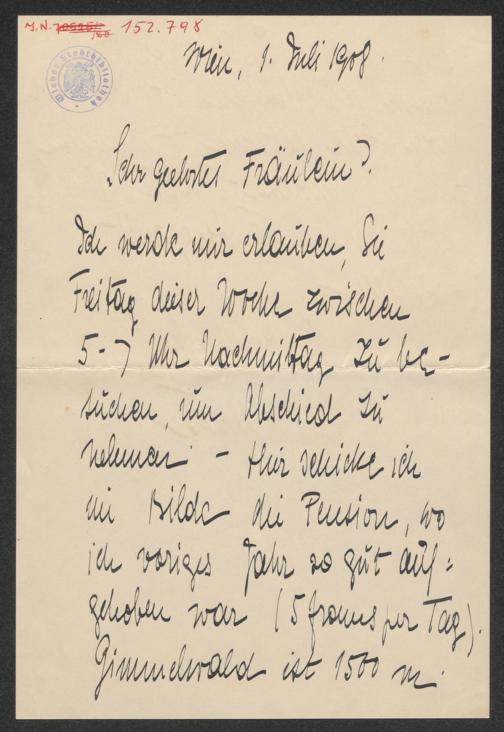 J.N. 152.798
Wiener Stadtbibliothek
Wien, 1. Juli 1908.
Sehr geehrtes Fräulein!
Ich werde mir erlauben, Sie
Freitag dieser Woche zwischen
5-7 Uhr Nachmittag zu be-
suchen, um Abschied zu
nehmen. - Hier schicke ich
im Bilde die Pension, wo
ich voriges Jahr so gut auf-
gehoben war (5 francs per Tag).
Gimmelwald ist 1500 m